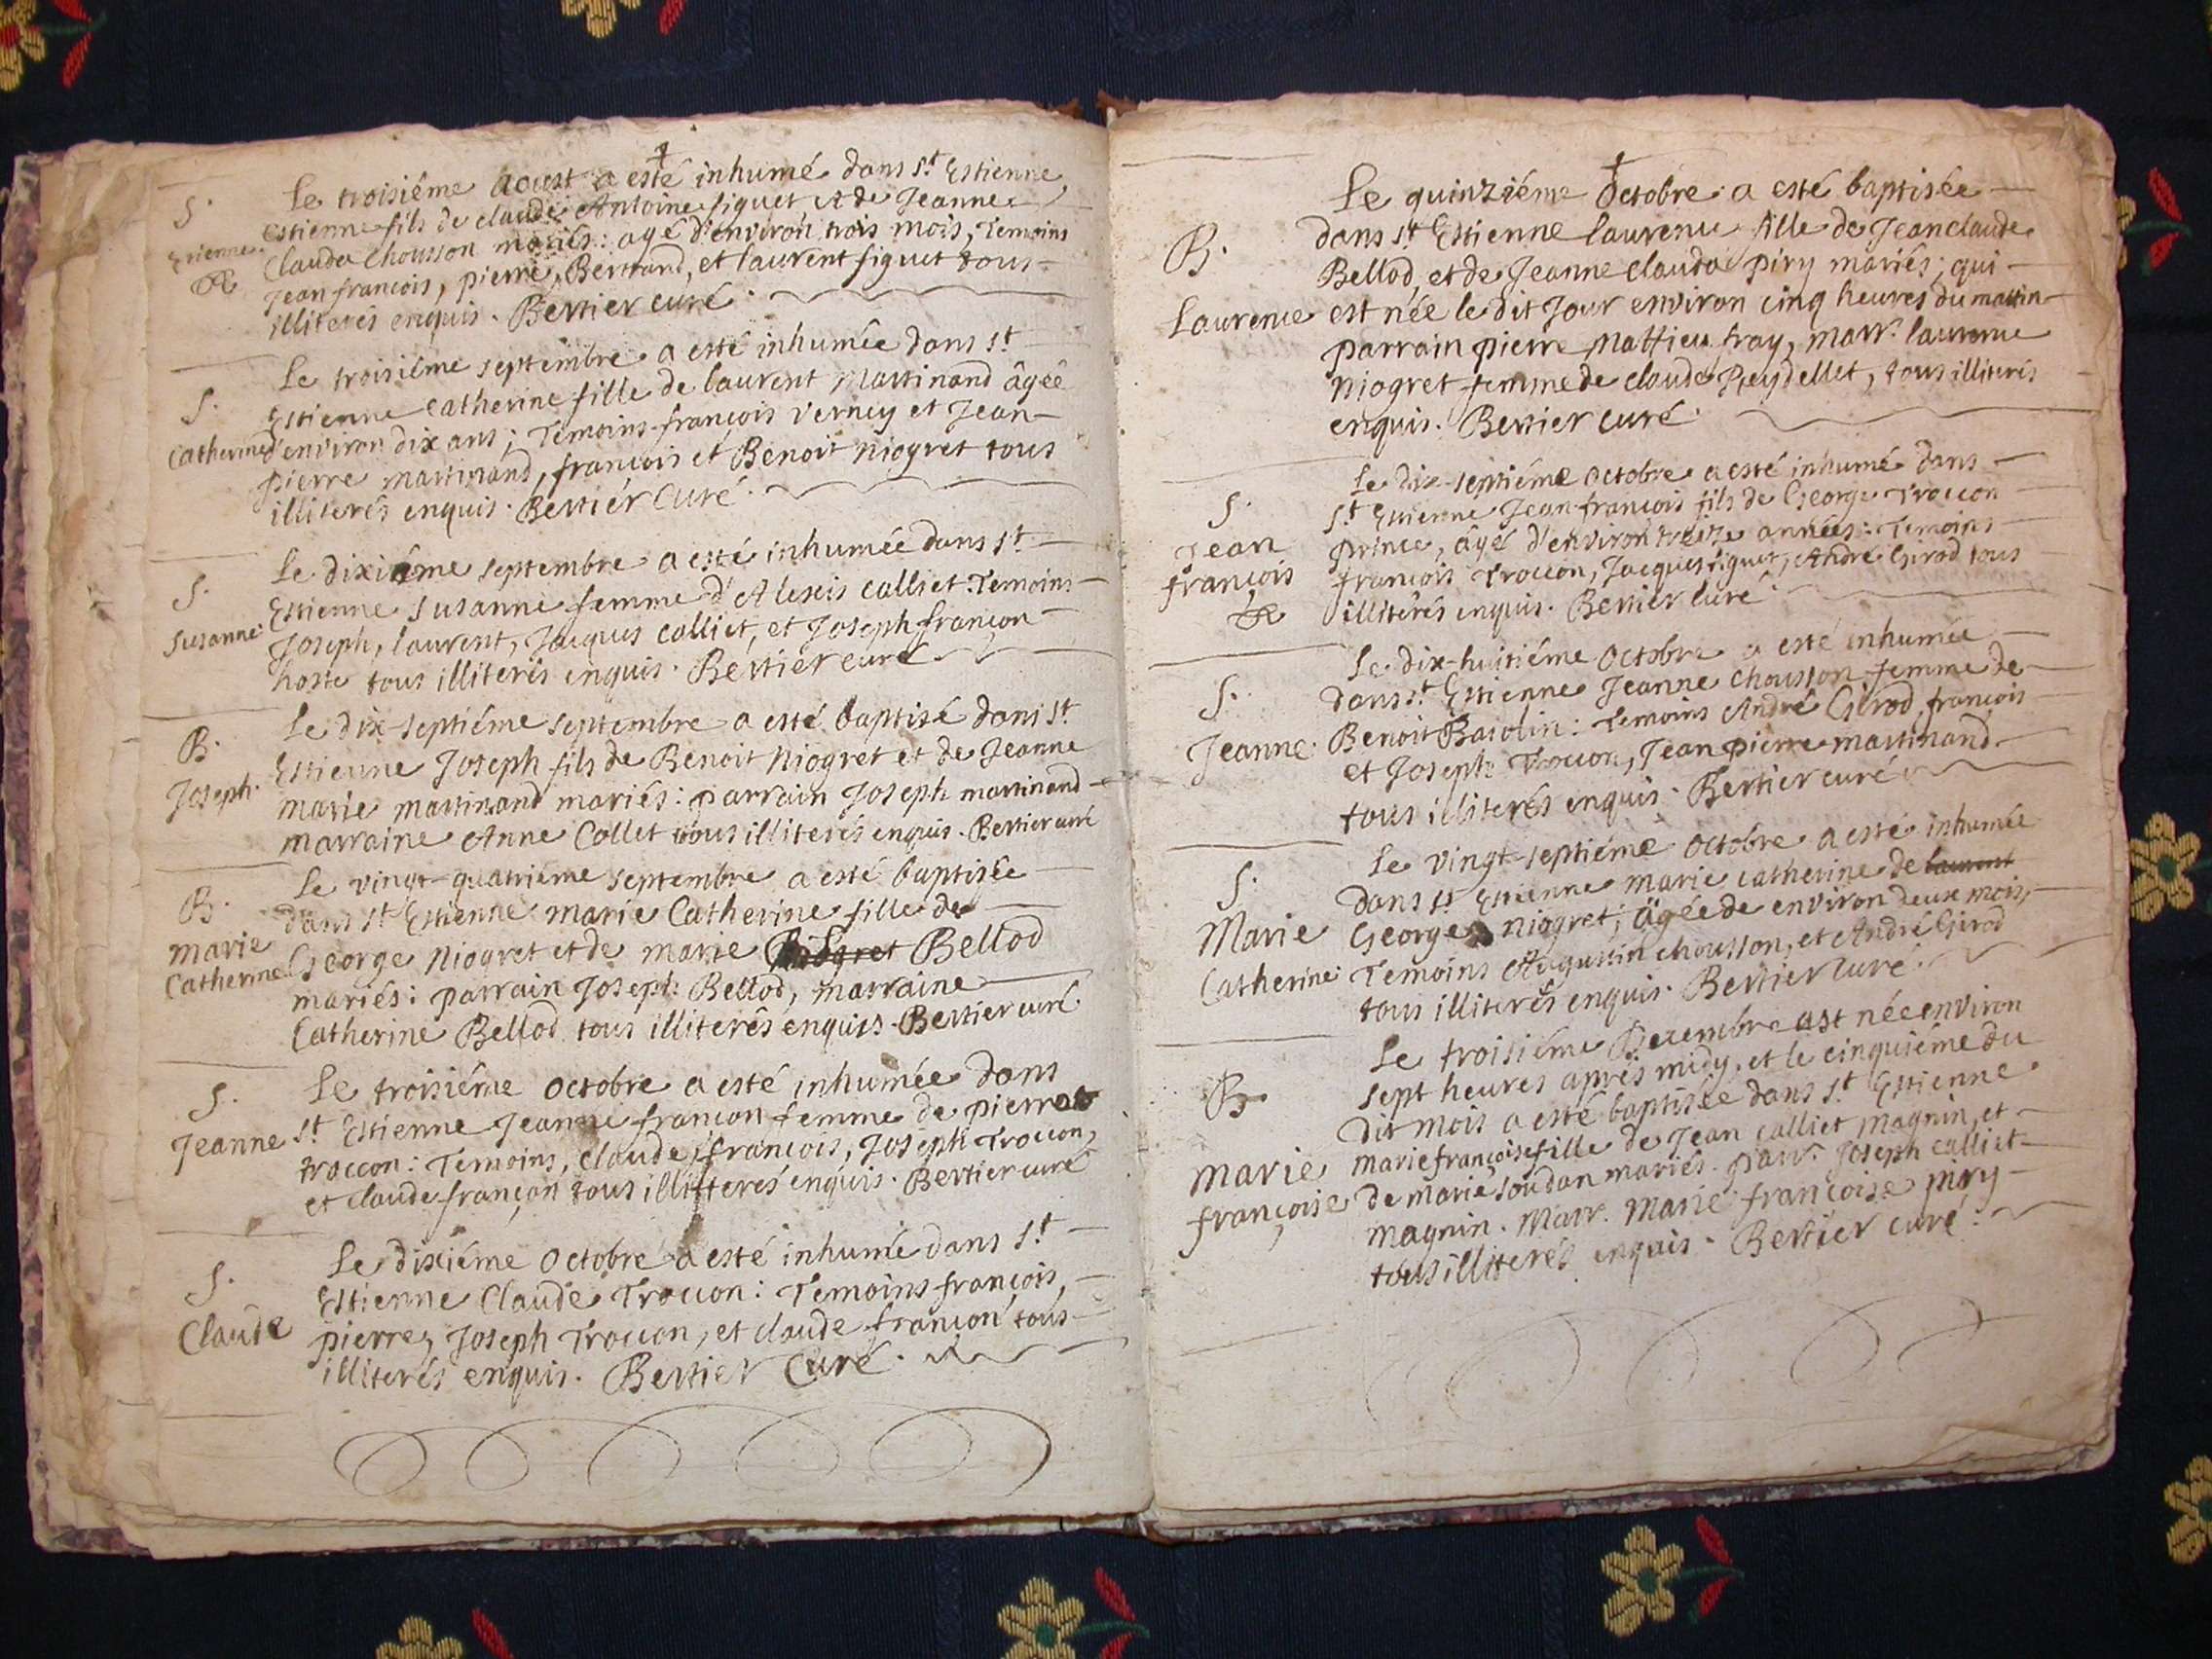 S.
Estienne.
Le troisiéme Aoust a esté inhumé dans St Estienne
Estienne fils de claude Antoine figuet et de Jeanne
Clauda Chousson mariés: agé d'environ trois mois, Temoins
Jean francois, pierre, Bertrand, et laurent figuet tous
illiterés enquis. Bertier curé.
S.
Catherine
Le troisiéme septembre a esté inhumée dans St
Estienne Catherine fille de laurent Martinand âgée
d'environ dix ans; Temoins françois Verney et Jean
pierre martinand, françois et Benoit Niogret tous
illiterés enquis. Bertier Curé.
S.
Susanne.
Le dixiéme septembre a esté inhumée dans St
Estienne Susanne femme d'Alexis calliet Temoins
Joseph, laurent, Jacques calliet, et Joseph françon
hoste tous illiterés enquis. Bertier curé
B.
Joseph.
Le dix septiéme septembre a esté baptisé dans St
Estienne Joseph fils de Benoit Niogret et de Jeanne
Marie martinand mariés: parrain Joseph martinand
marraine Anne Collet tous illiterés enquis. Bertier curé
B.
Marie
Catherine
Le vingt-quatriéme septembre a esté baptisée
dans St Estienne marie Catherine fille de
George Niogret et de marie Niogret Bellod
mariés: parrain Joseph Bellod, marraine
Catherine Bellod tous illiterés enquis. Bertier curé.
S.
Jeanne
Le troisiéme octobre a esté inhumée dans
St Estienne Jeanne françon femme de pierre
troccon: Temoins, claude, françois, Joseph Troccon,
et claude françon tous illiterés enquis. Bertier curé
S.
Claude
Le dixiéme octobre a esté inhumé dans St
Estienne Claude Troccon: Temoins françois,
pierre, Joseph Troccon, et claude françon tous
illiterés enquis. Bertier Curé.
B.
Laurence
Le quinziéme Octobre a esté baptisée
dans St Estienne laurence fille de Jean claude
Bellod, et de Jeanne clauda piry mariés; qui
est née le dit Jour environ cinq heures du matin
parrain pierre Mathieu tray, marr. laurence
Niogret femme de claude Peydellet, tous illiterés
enquis. Bertier curé.
S.
Jean
françois
Le dix-septiéme octobre a esté inhumé dans
St Estienne Jean françois fils de George Troccon
prince, âgé d'environ treize années: Temoins
françois Troccon, Jacques figuet, André Girod tous
illiterés enquis. Bertier curé.
S.
Jeanne.
Le dix-huitiéme Octobre a esté inhumée
dans St Estienne Jeanne chousson femme de
Benoit Basolin: Temoins André Girod, françois
et Joseph Troccon, Jean pierre martinand
tous illiterés enquis. Bertier curé
S.
Marie
Catherine.
Le vingt-septiéme octobre a esté inhumée
dans St Estienne marie catherine de laurent
George Niogret; âgée de environ deux mois,
Temoins Augustin chousson, et André Girod
tous illiterés enquis. Bertier curé.
B.
Marie
françoise
Le troisiéme Decembre est née environ
sept heures aprés midy, et le cinquiéme du
dit mois a esté baptisée dans St Estienne
marie françoise fille de Jean calliet magnin, et
de marie soudan mariés. parr. Joseph calliet
magnin. Marr. Marie françoise piry
tous illiterés enquis. Bertier curé.